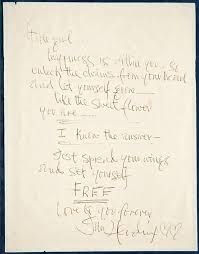 little girl
happiness is within you - so
unlock the chains from your heart
and let yourself grow —
like the sweet flower
you are .....
I know the answer -
Just spread your wings
and set yourself
FREE
Love to you forever
Hendrix